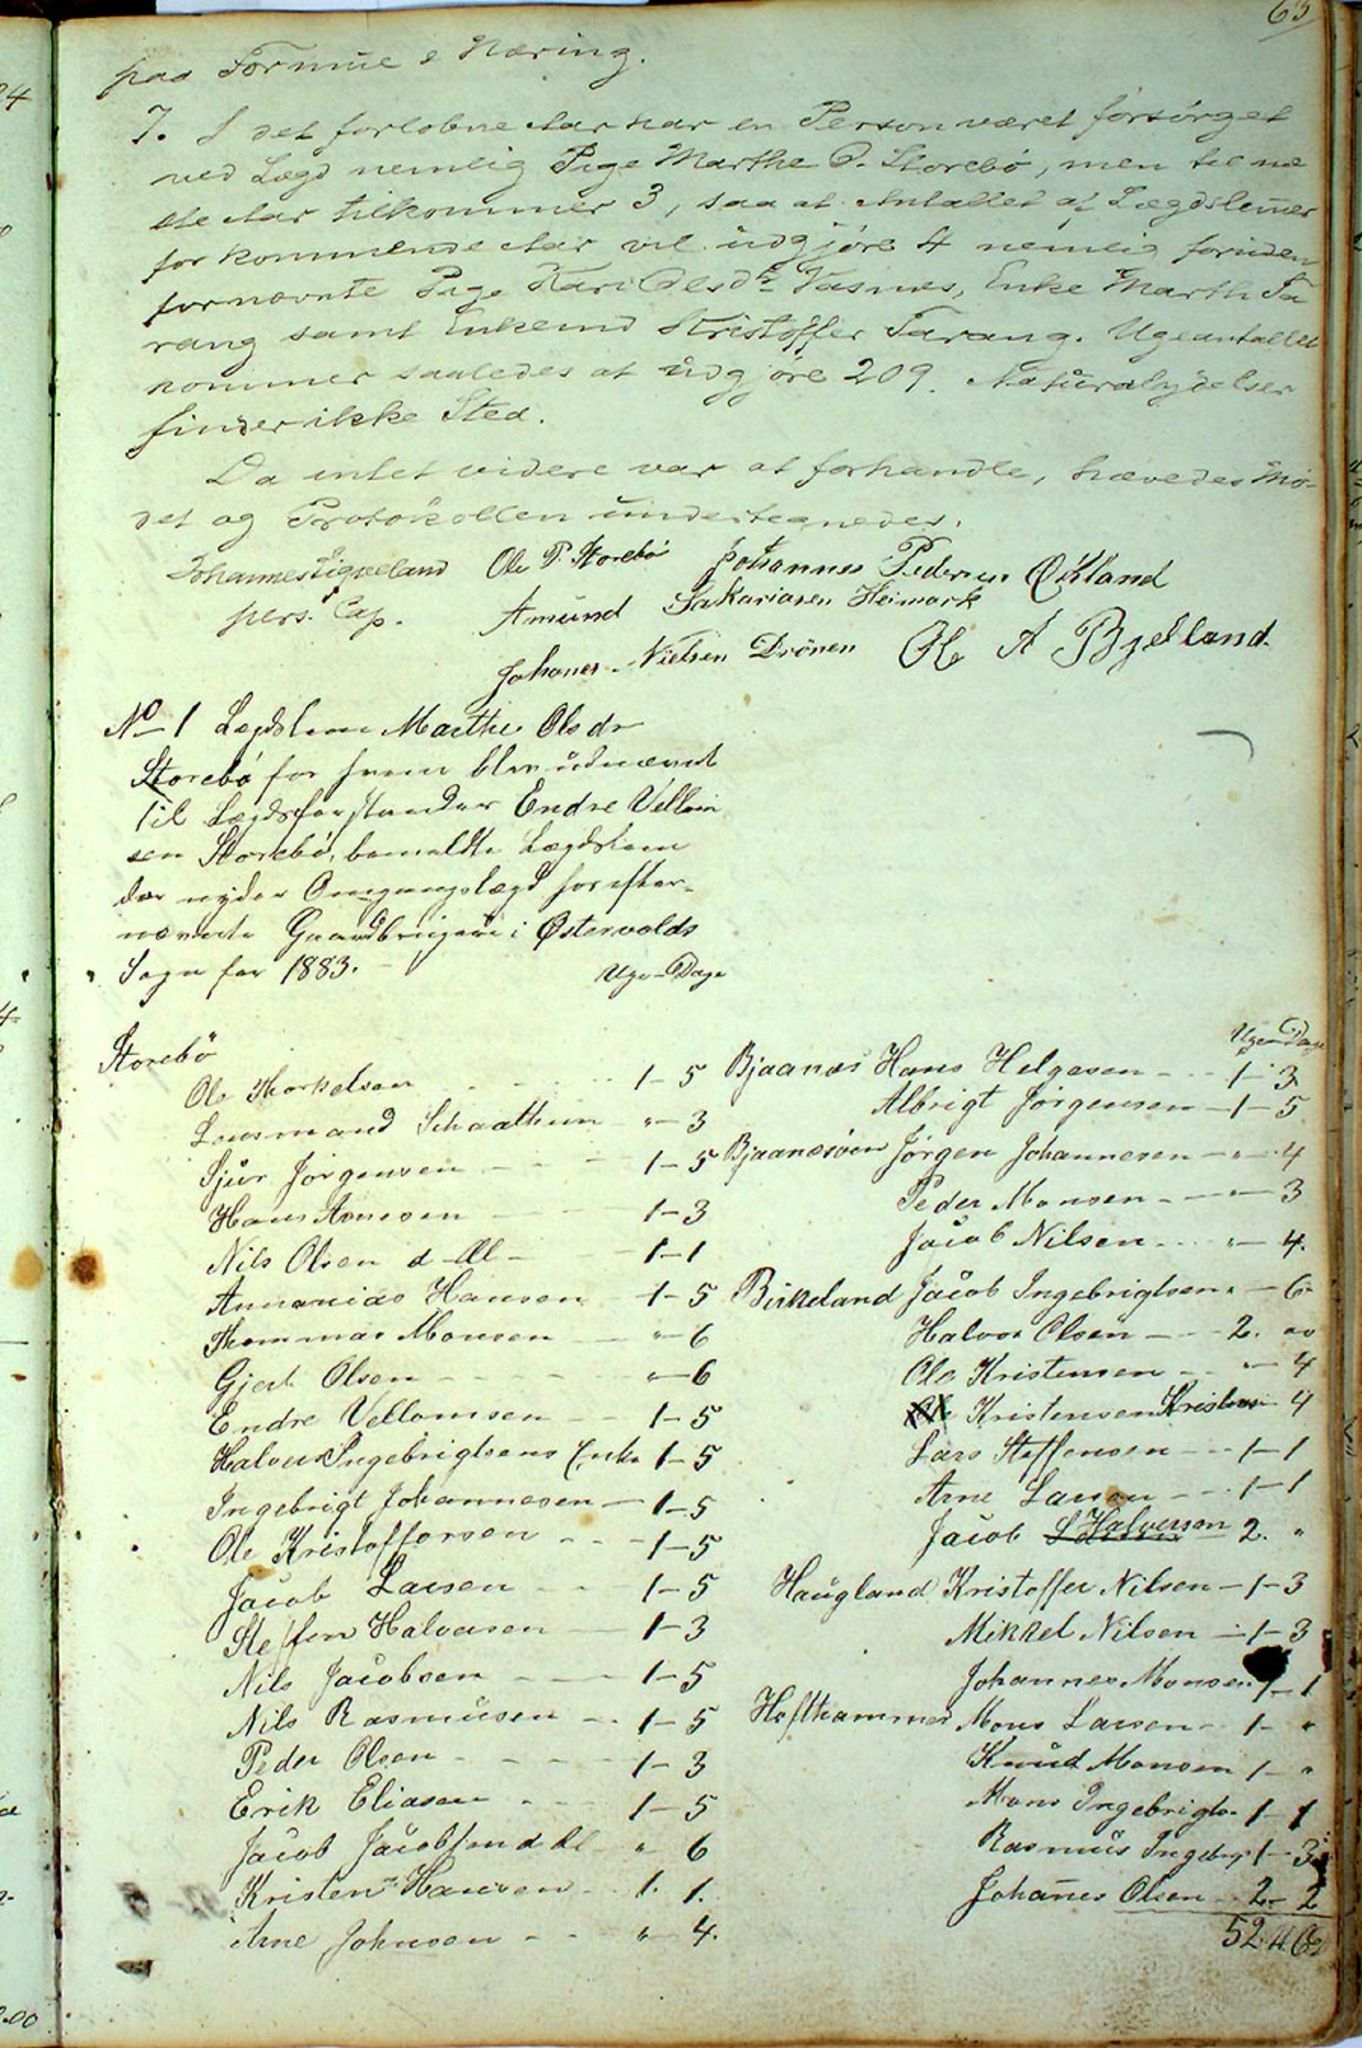 63
paa Formue & Næring.
7. I det forløbne Aar har en Person været forsørget
ved Lægd nemlig Pige Marthe O. Storebø, men til næ
ste Aar tilkommer 3, saa at Antallet af Lægdslemer
for kommende Aar vil udgjøre 4 nemlig foruden
fornævnte Pige Kari Olesdr Vasnes, Enke Marth Ta
rang samt Enkemd Kristoffer Tarang. Ugeantallet
kommer saaledes at udgjøre 209. Naturalydelser
finder ikke Sted.
Da intet videre var at forhandle, hævedes Mø-
det og Protokollen undertegnedes.
Johannes Ole P. Storebø Johannes Pedersen Økland
pers. Cap. Amund Sakariasen Heimark
Johanes Nielsen Drönen Ole A Bjelland
No 1 Lægdslem Marthe Olsdr
Storebø for hvem blev udnævnt
til Lægdsforstander Endre Vellom
sen Storebø, bemeldte Lægdslem
der nyder Omgangslægd hos efter-
nævnte Gaardbrugere i Østervolds
Sogn for 1883.
Uge - Dage
Storebö
Ole Thorkelsen 1 - 5
Lensmand Schaathun " - 3
Sjur Jørgensen 1 - 5
Hans Arnesen 1 - 3
Nils Olsen d Æl - 1 - 1
Annanias Hansen 1 - 5
Thommas Monsen " - 6
Gjert Olsen " - 6
Endre Vellomsen 1 - 5
Halvor Ingebrigtsens Enke 1 - 5
Ingebrigt Johannesen - 1 - 5
Ole Kristoffersen 1 - 5
Jacob Larsen 1 - 5
Steffen Halvorsen 1 - 3
Nils Jacobsen 1 - 5
Nils Rasmusen 1 - 5
Peder Olsen 1 - 3
Erik Eliasen 1 - 5
Jacob Jacobsen d Æl " 6
Kristen Hansen 1. 1.
Arne Johnsen " 4.
Uge - Dage
Bjaanæs Hans Helgesen 1 - 3
Albrigt Jørgensen - 1 - 5
Bjaanesøen Jørgen Johannesen - " - 4
Peder Monsen " - 3
Jacob Nilsen " - 4.
Birkeland Jacob Ingebrigtsen " - 6
Halvor Olsen 2. "
Ole Kristensen " - 4
Kristensen Kristen 4
Lars Steffensen 1 - 1
Arne Larsen 1 - 1
Jacob Halversen 2. "
Haugland Kristoffer Nilsen - 1 - 3
Mikkel Nilsen - 1 - 3
Johannes Monsen 1 - 1
Hofthammer Mons Larsen 1 - "
Knud Monsen 1 - "
Mons Ingebrigts. 1 - 1
Rasmus Ingebrg 1 - 3
Johanes Olsen 2 - 2
52